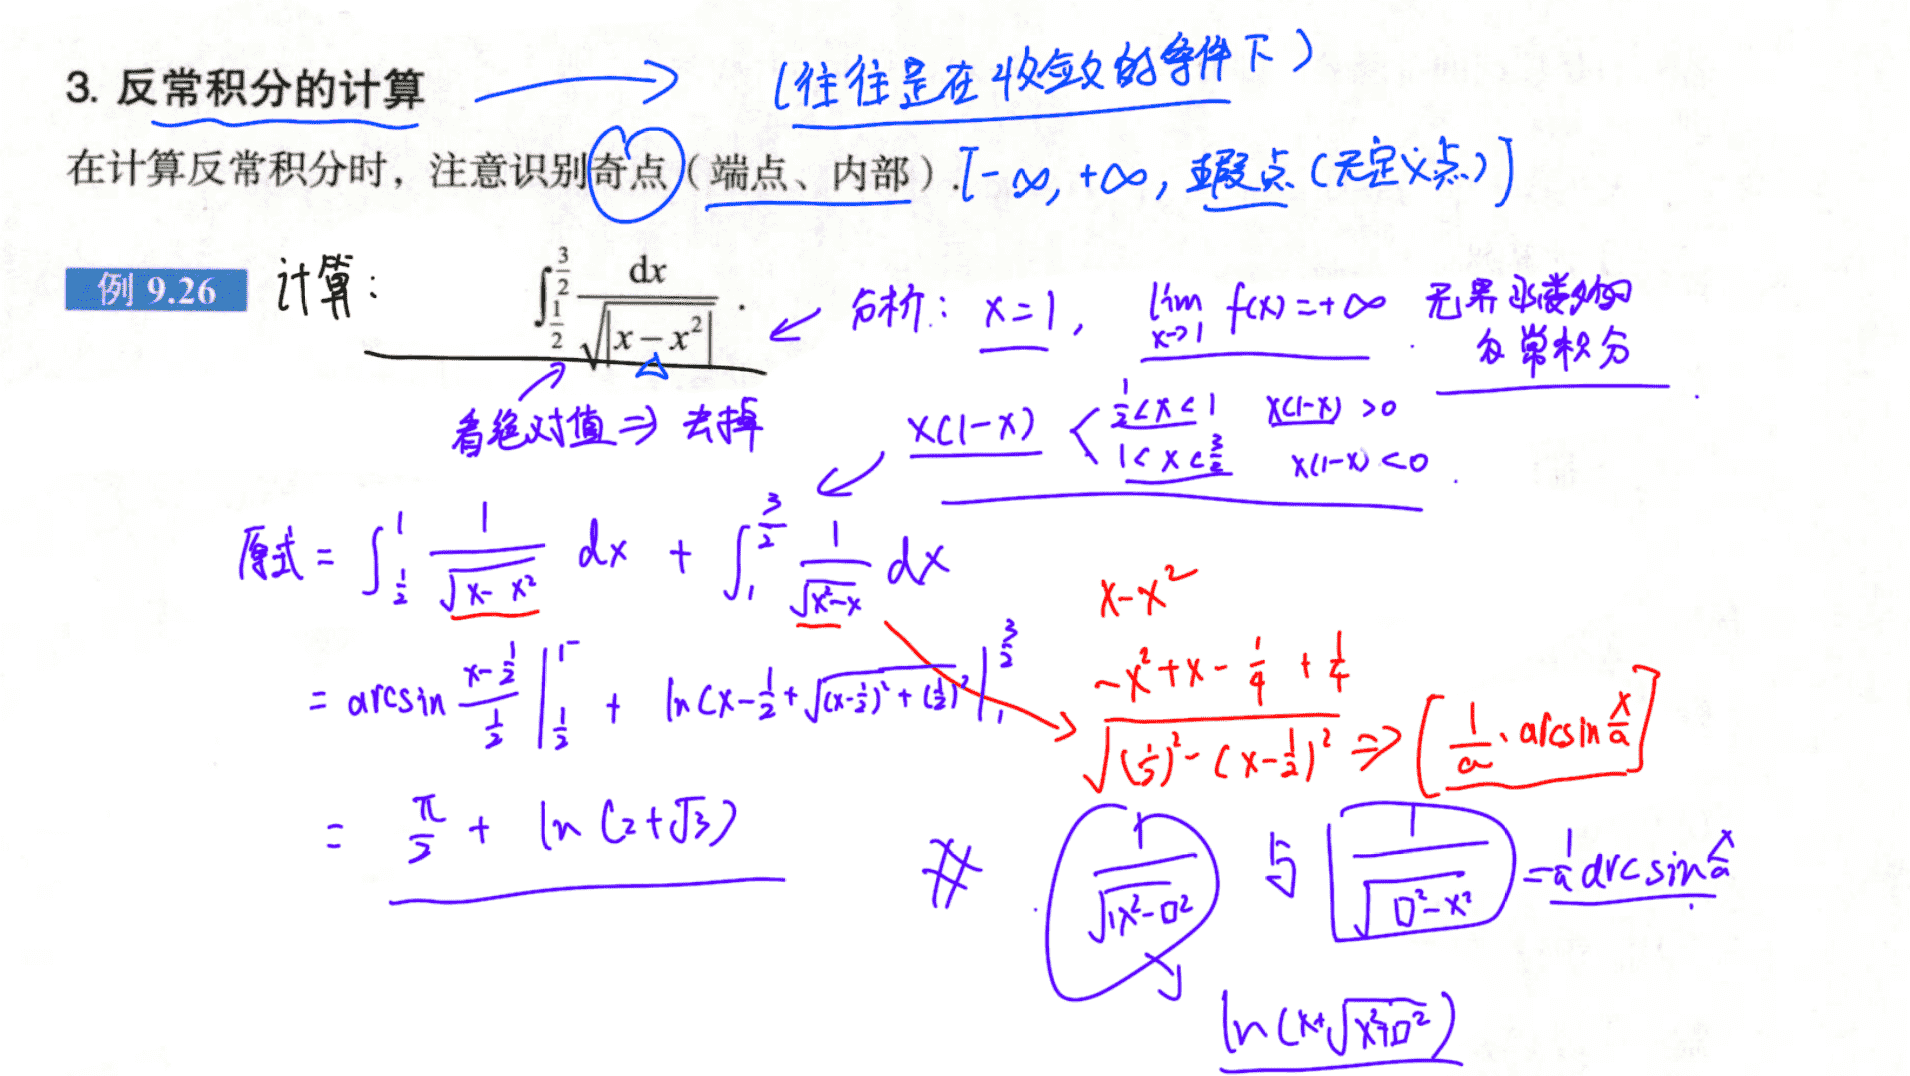 3. 反常积分的计算 → (往往是在收敛的条件下)
在计算反常积分时，注意识别奇点（端点、内部）. [-∞, +∞, 瑕点 (无定义点)]
例 9.26 计算: ∫_{1/2}^{3/2} dx/√|x-x²| .
分析: x=1, lim_{x→1} f(x)=+∞ . 无界函数的
反常积分
看绝对值 ⇒ 去掉
x(1-x) < 1/2<x<1 x(1-x)>0
1<x<3/2 x(1-x)<0 .
原式 = ∫_{1/2}^{1} 1/√(x-x²) dx + ∫_{1}^{3/2} 1/√(x²-x) dx
x-x²
-x²+x-1/4+1/4
= arcsin (x-1/2)/(1/2) |_{1/2}^{1⁻} + ln(x-1/2+√((x-1/2)²+(1/2)²)) |_{1}^{3/2}
√((1/2)²-(x-1/2)²) ⇒ [1/a · arcsin x/a]
= π/2 + ln(2+√3) #
1/√(x²-□²) 与 1/√(□²-x²) = 1/a arcsin x/a
ln(x+√(x²+□²))